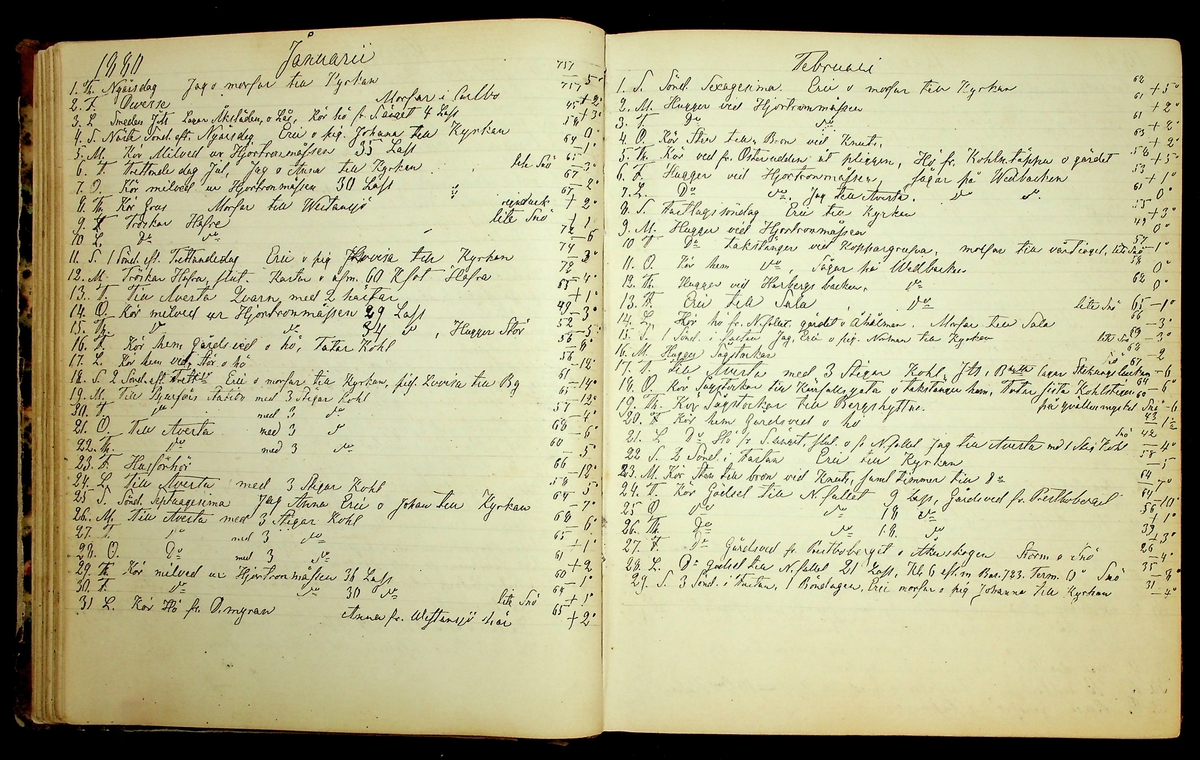 1880 Januarii
757
1. Th. Nyårsdag Jag o morfar till Kyrkan 757 - 5°
2. F. Diverse Morfar i Carlbo + 2°
3. L. Smeden Jth Lagar Åkslåden, o Låg, Kör hö fr. S. änget 4 Lass + 3°
4. S. Näste Sönd. eft. Nyårsdag Eric o pig. Johanna till Kyrkan 58 0°
5. M. Kör Milved ur Hjortronmåssen 35 Lass 64 - 1°
6. T. Trettonde dag Jul, Jag o Anna till Kyrkan lite Snö 65 - 3°
7. O. Kör milved ur Hjortronmåssen 30 Lass 67 - 2°
8. Th. Kör Grus Morfar till Westansjö 67 + 2°
9. F. Tröskar Hafre lite Snö + 1°
10 L. Do do 72 - 6
11. S. 1 Sönd. eft. Trettondedag Eric o pig Lovisa till Kyrkan 74 - 3°
12. M. Tröskar Hafre, slut Kastar o afm. 60 K.fot Hafra 72 - 4°
13. T. Till Avesta Qvarn med 2 hästar 55 + 1°
14. O. Kör milved ur Hjortronmåssen 29 Lass 49 - 3°
15. Th. do do 34 do, Hugger Stör 52 - 5°
16. F. Kör hem gärdsved o hö, Tatar Kohl 56 - 8°
17. L. Kör hem ved, stör o hö 56 - 12°
18. S. 2 Sönd. eft. Trett. Eric o morfar till Kyrkan, pig. Lovisa till Bg 61 - 14°
19. M. Till med 3 Stigar Kohl 65 - 12°
20. T. do med 3 do 57 - 4°
21. O. Till Avesta med 3 do 68 - 6°
22. Th. do med 3 do 60 - 5
23. F. Husförhör 66 - 12°
24. L. Till Avesta med 3 Stigar Kohl 58 - 5
25 S. Sönd. Septuagesima Jag Anna Eric o Johan till Kyrkan 64 - 7°
26. M. Till Avesta med 3 Stigar Kohl 68 - 6°
27. T. do med 3 do 65 + 1°
28. O. Do med 3 do 61 + 2
29. Th. Kör milved ur Hjortronmåssen 36 Lass 60 - 1°
30. F. do do 30 do lite Snö 64 + 1°
31 L. Kör Hö fr. O. myran Anna fr. Westansjö här 65 + 2°
Februari
1. S. Sönd. Sexagesima Eric o morfar till Kyrkan 62 + 5°
2. M. Hugger ved Hjortronmåssen 61 + 2°
3. T. Do do 61 + 2°
4. O. Kör Sten till Bron ved Knuts, 63 + 2°
5. Th. Kör ved fr. Österedden åt pliggen, Hö fr. Kohlu.täppa o gärdet 58 + 5°
6. F. Hugger ved Hjortronmåssen, Sågar på Wedbacken 53 + 1°
7. L. Do do Jag till Avesta. do do 61 0°
8. S. Fastlagssöndag Eric till Kyrkan 55 + 3°
9. M. Hugger ved Hjortronmåssen 49 0°
10 T. Do Takstänger ved Koppargrufva, morfar till lite Snö 57 - 1°
11. O. Kör hem do, Sågar på Wedbacke 0°
12. Th. Hugger ved Harbergs backen, do 62 0°
13. F. Eric till Sala do lite Snö 65 - 1°
14. L. Kör hö fr. N. fallet gärdet o åholmen. Morfar till Sala 66 - 3°
15. S. 1 Sönd. i Fastan Jag, Eric o pig. Norman till Kyrkan lite Snö 69 - 3°
16. M. Hugger Sågstockar 62 - 2
17. T. Till Avesta med 3 Stigar Kohl, Jth, lagar luckan 61 - 6
18. O. Kör Sågstockar till o takstänger hem, Tatar sista Kohlstigen 60 - 6°
19. Th. Kör Sågstockar till Bergshyttne. frå qvällen mycket Snö - 6
20. F. Kör hem gärdsved o hö 43 - 1½
21. L. Do Hö fr. S. änget, slut o fr N. fallet Jag till Avesta md 1 Stig Kohl Snö 42 - 4°
22 S. 2 Sönd. i Fastan Eric till Kyrkan 58 - 5
23. M. Kör Sten till bron ved Knuts, samt timmer till do 64 - 7°
24. T. Kör Gödsel till N. fallet 9 Lass, Gärdsved fr. Bertbo 64 - 10°
25 O. do do 18 do 56 - 1°
26. Th. Do do 18 do 39 - 3°
27. F. Do Gärdsved fr. o Åkerskogen Storm o Snö 26 - 4°
28. L. Do gödsel till N. fallet 21 Lass, Kl. 6 eft.m Bar. 723. Term. 0° Snö 35 - 8°
29. S. 3 Sönd. i Fastan, 1 Böndagen, Eric morfar o pig Johanna till Kyrkan 31 - 4°